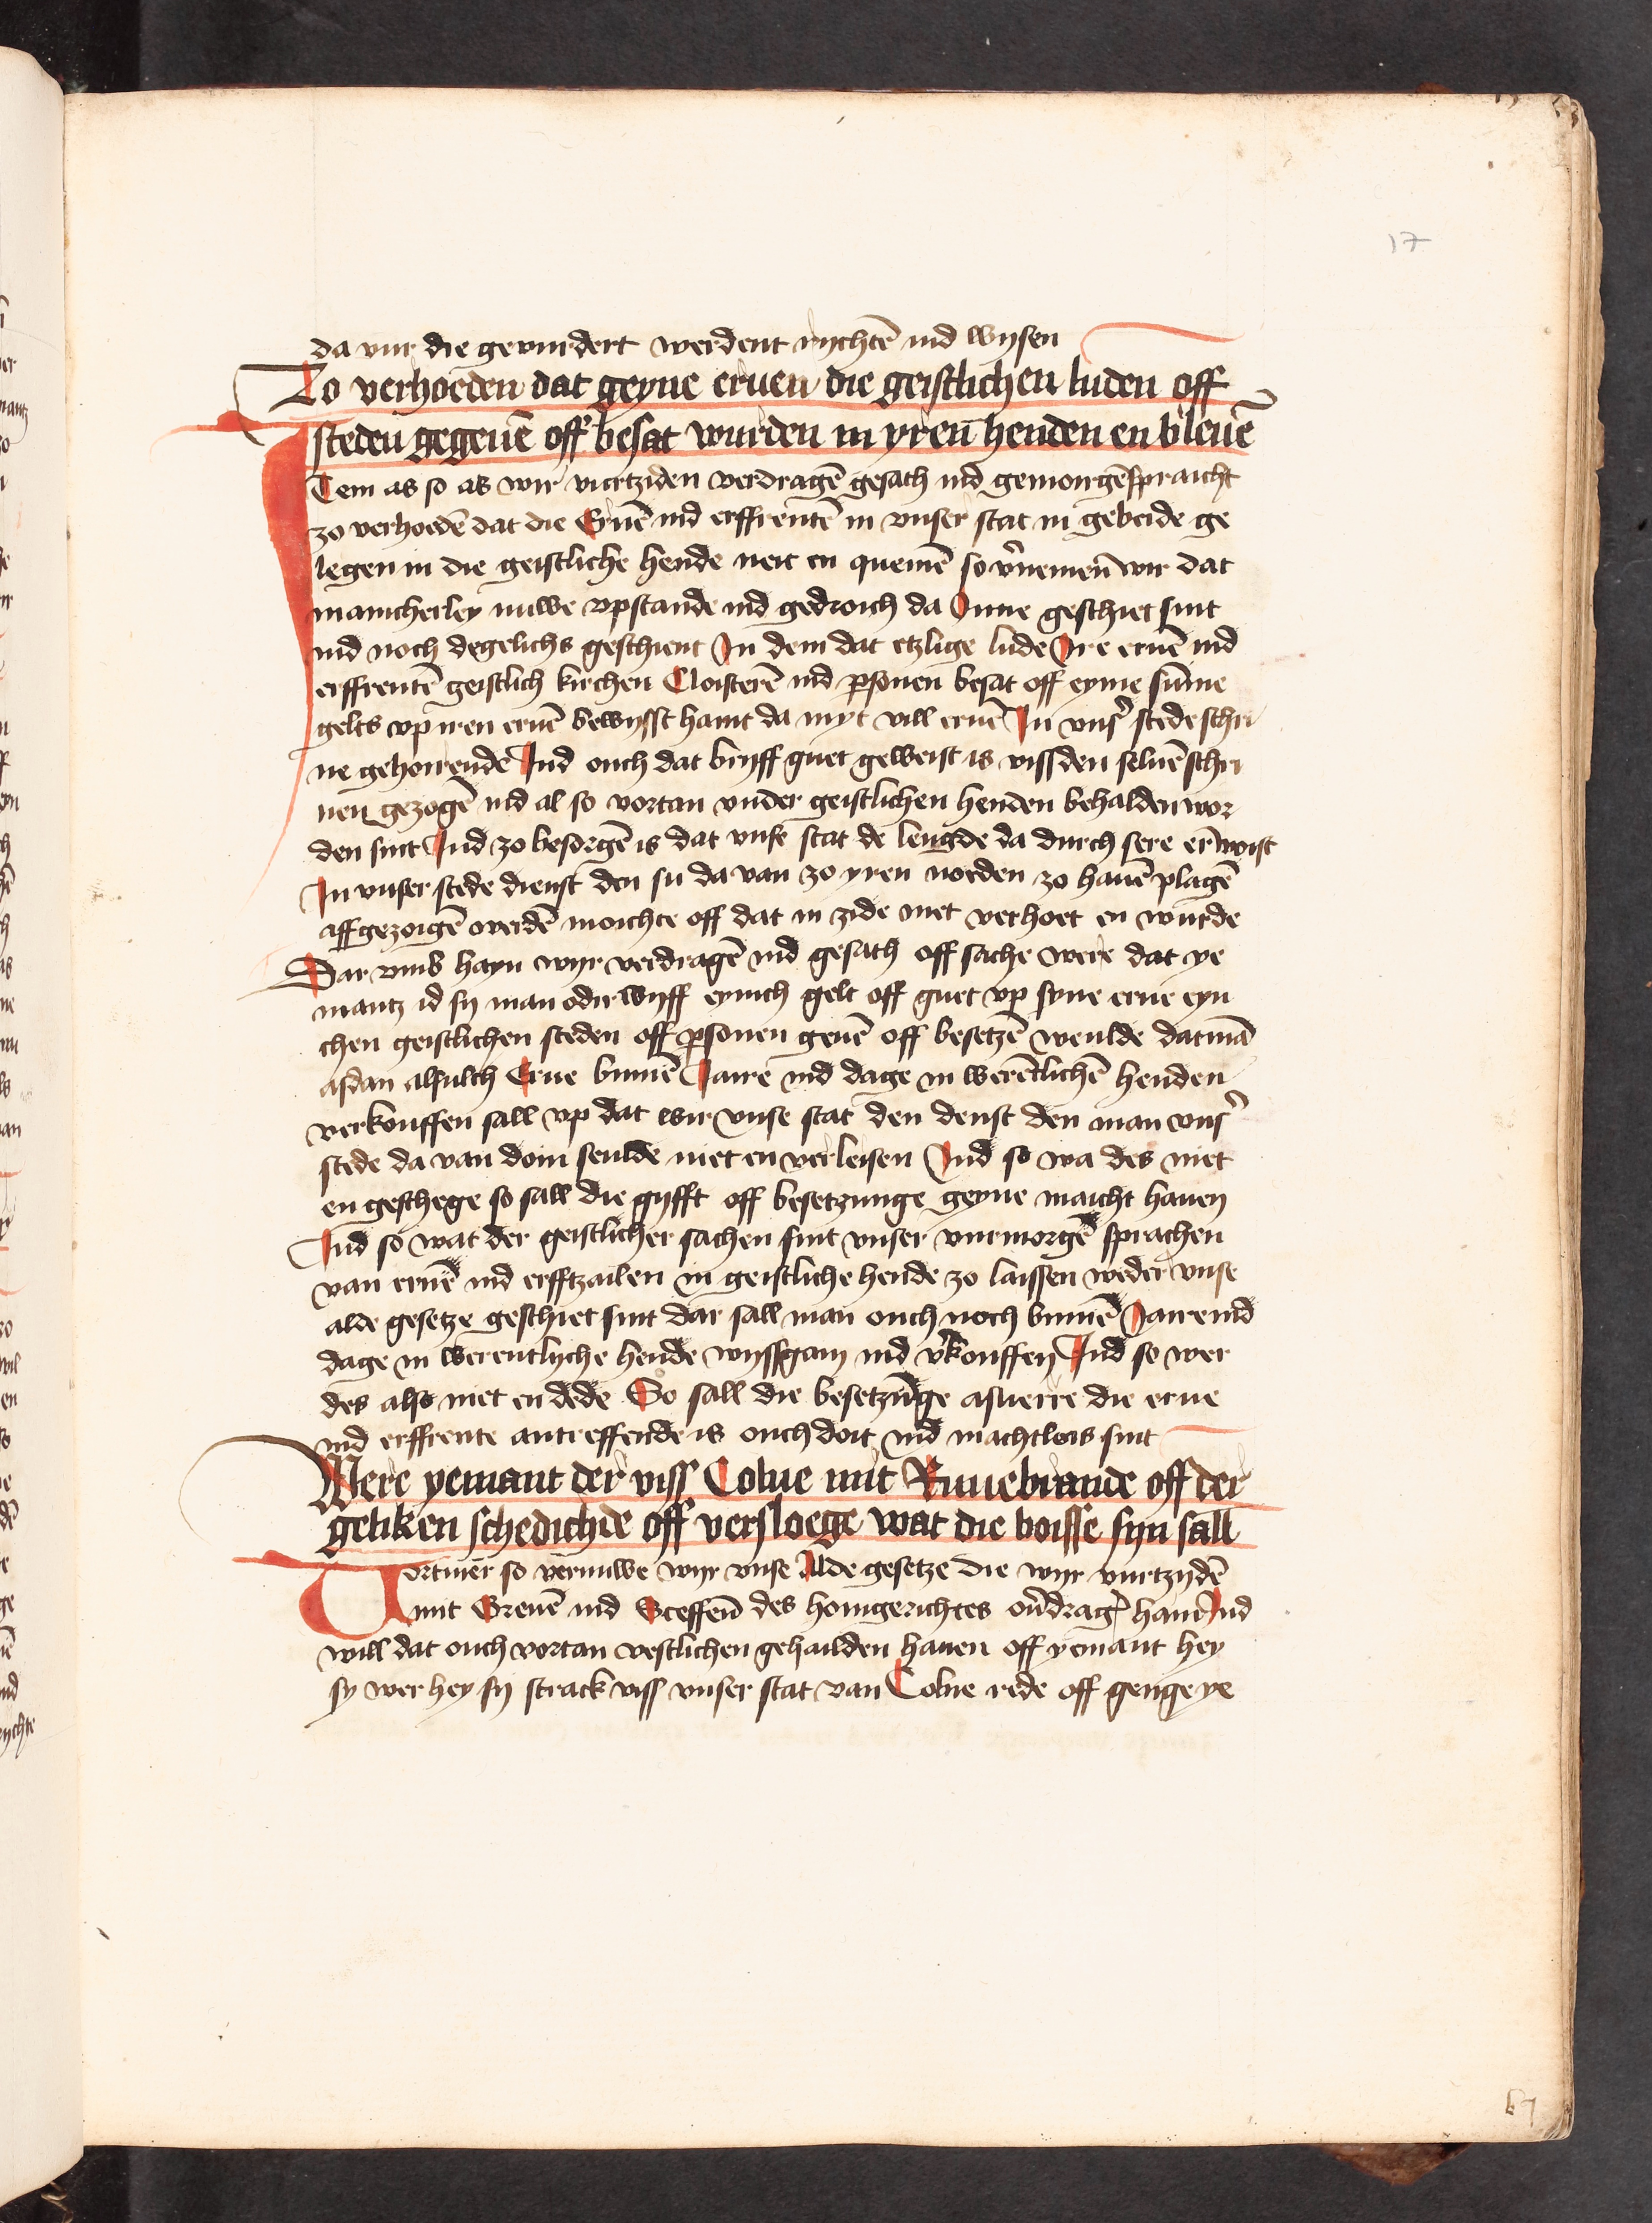 17
da vur die gevurdert werdent rychtē ind wysen
Zo verhoeden dat geyne eruen die geistlichen luden off
steden gegeuē off besat wurden in yren henden en bleuē
Item as so as wir vurtziden verdragē gesath ind gemorgēspraicht
zo verhoedē dat die Eruē ind erffrentē in vnser stat in gebeide ge
legen in die geistliche hende neit en quemē so v'nemen wir dat
mancherley nuwe vpstande ind gedroich da Inne geschiet sint
ind noch degelichs geschient In dem dat etzlige lude Ire eruē ind
erffrentē geistlich kirchen Cloisterē ind psonen besat off eyme sūme
gelts vp iren eruē bewysst haint da myt vill eruē In vns' stede schri
ne gehoirende Ind ouch dat bryff guet geweist is vissden seluē schri
nen gezogē ind al so vortan vnder geistlichen henden behalden wor
den sint Ind zo besorgē is dat vnse stat de lengde da durch sere erwoist
In vnser stede dienst den su da van zo yren noeden zo hauē plagē
affgezoigē werdē moichte off dat in zide niet verhoet en wurde
Dar vmb hayn wyr verdragē ind gesath off sache were dat ye
mantz id sy man odir wyff eynich gelt off guet vp syne erue eyn
chen geistlichen steden off psonen geuē off besetzē weulde dat mā
asdan alsulch Erue bynnē Jaire ind dage in werētlichē henden
verkouffen sall vp dat wir vnse stat den denst den man vns'
stede da van doin seulde niet en verleisen Ind so wa des niet
en geschege so sall die gyfft off besetzunge geyne maicht hauen
Ind so wat der geistlicher sachen sint vnser vurmorgē sprachen
van eruē ind erfftzailen in geistliche hende zo laissen weder vnse
alde gesetze geschiet sint dar sall man ouch noch bynnē Jaire ind
dage in werentlyche hende wyssgain ind v'kouffen Ind so wer
des also niet en dede So sall die besetzūge asuerre die erue
ind erffrente antreffende is ouch doit ind machtlois sint
Were yemant der viss Colne mit Rouebrande off der
geliken schedichde off versloege wat die boisse syn sall
Vortmer so vernuwe wyr vnse Alde gesetze die wyr vurtzydē
mit Greuē ind Sceffen des hoingerichtes ov'drag' hain Ind
will dat ouch vortan vestlichen gehailden hauen off yemant hey
sy wer hey sy strack viss vnser stat van Colne rede off genge ye